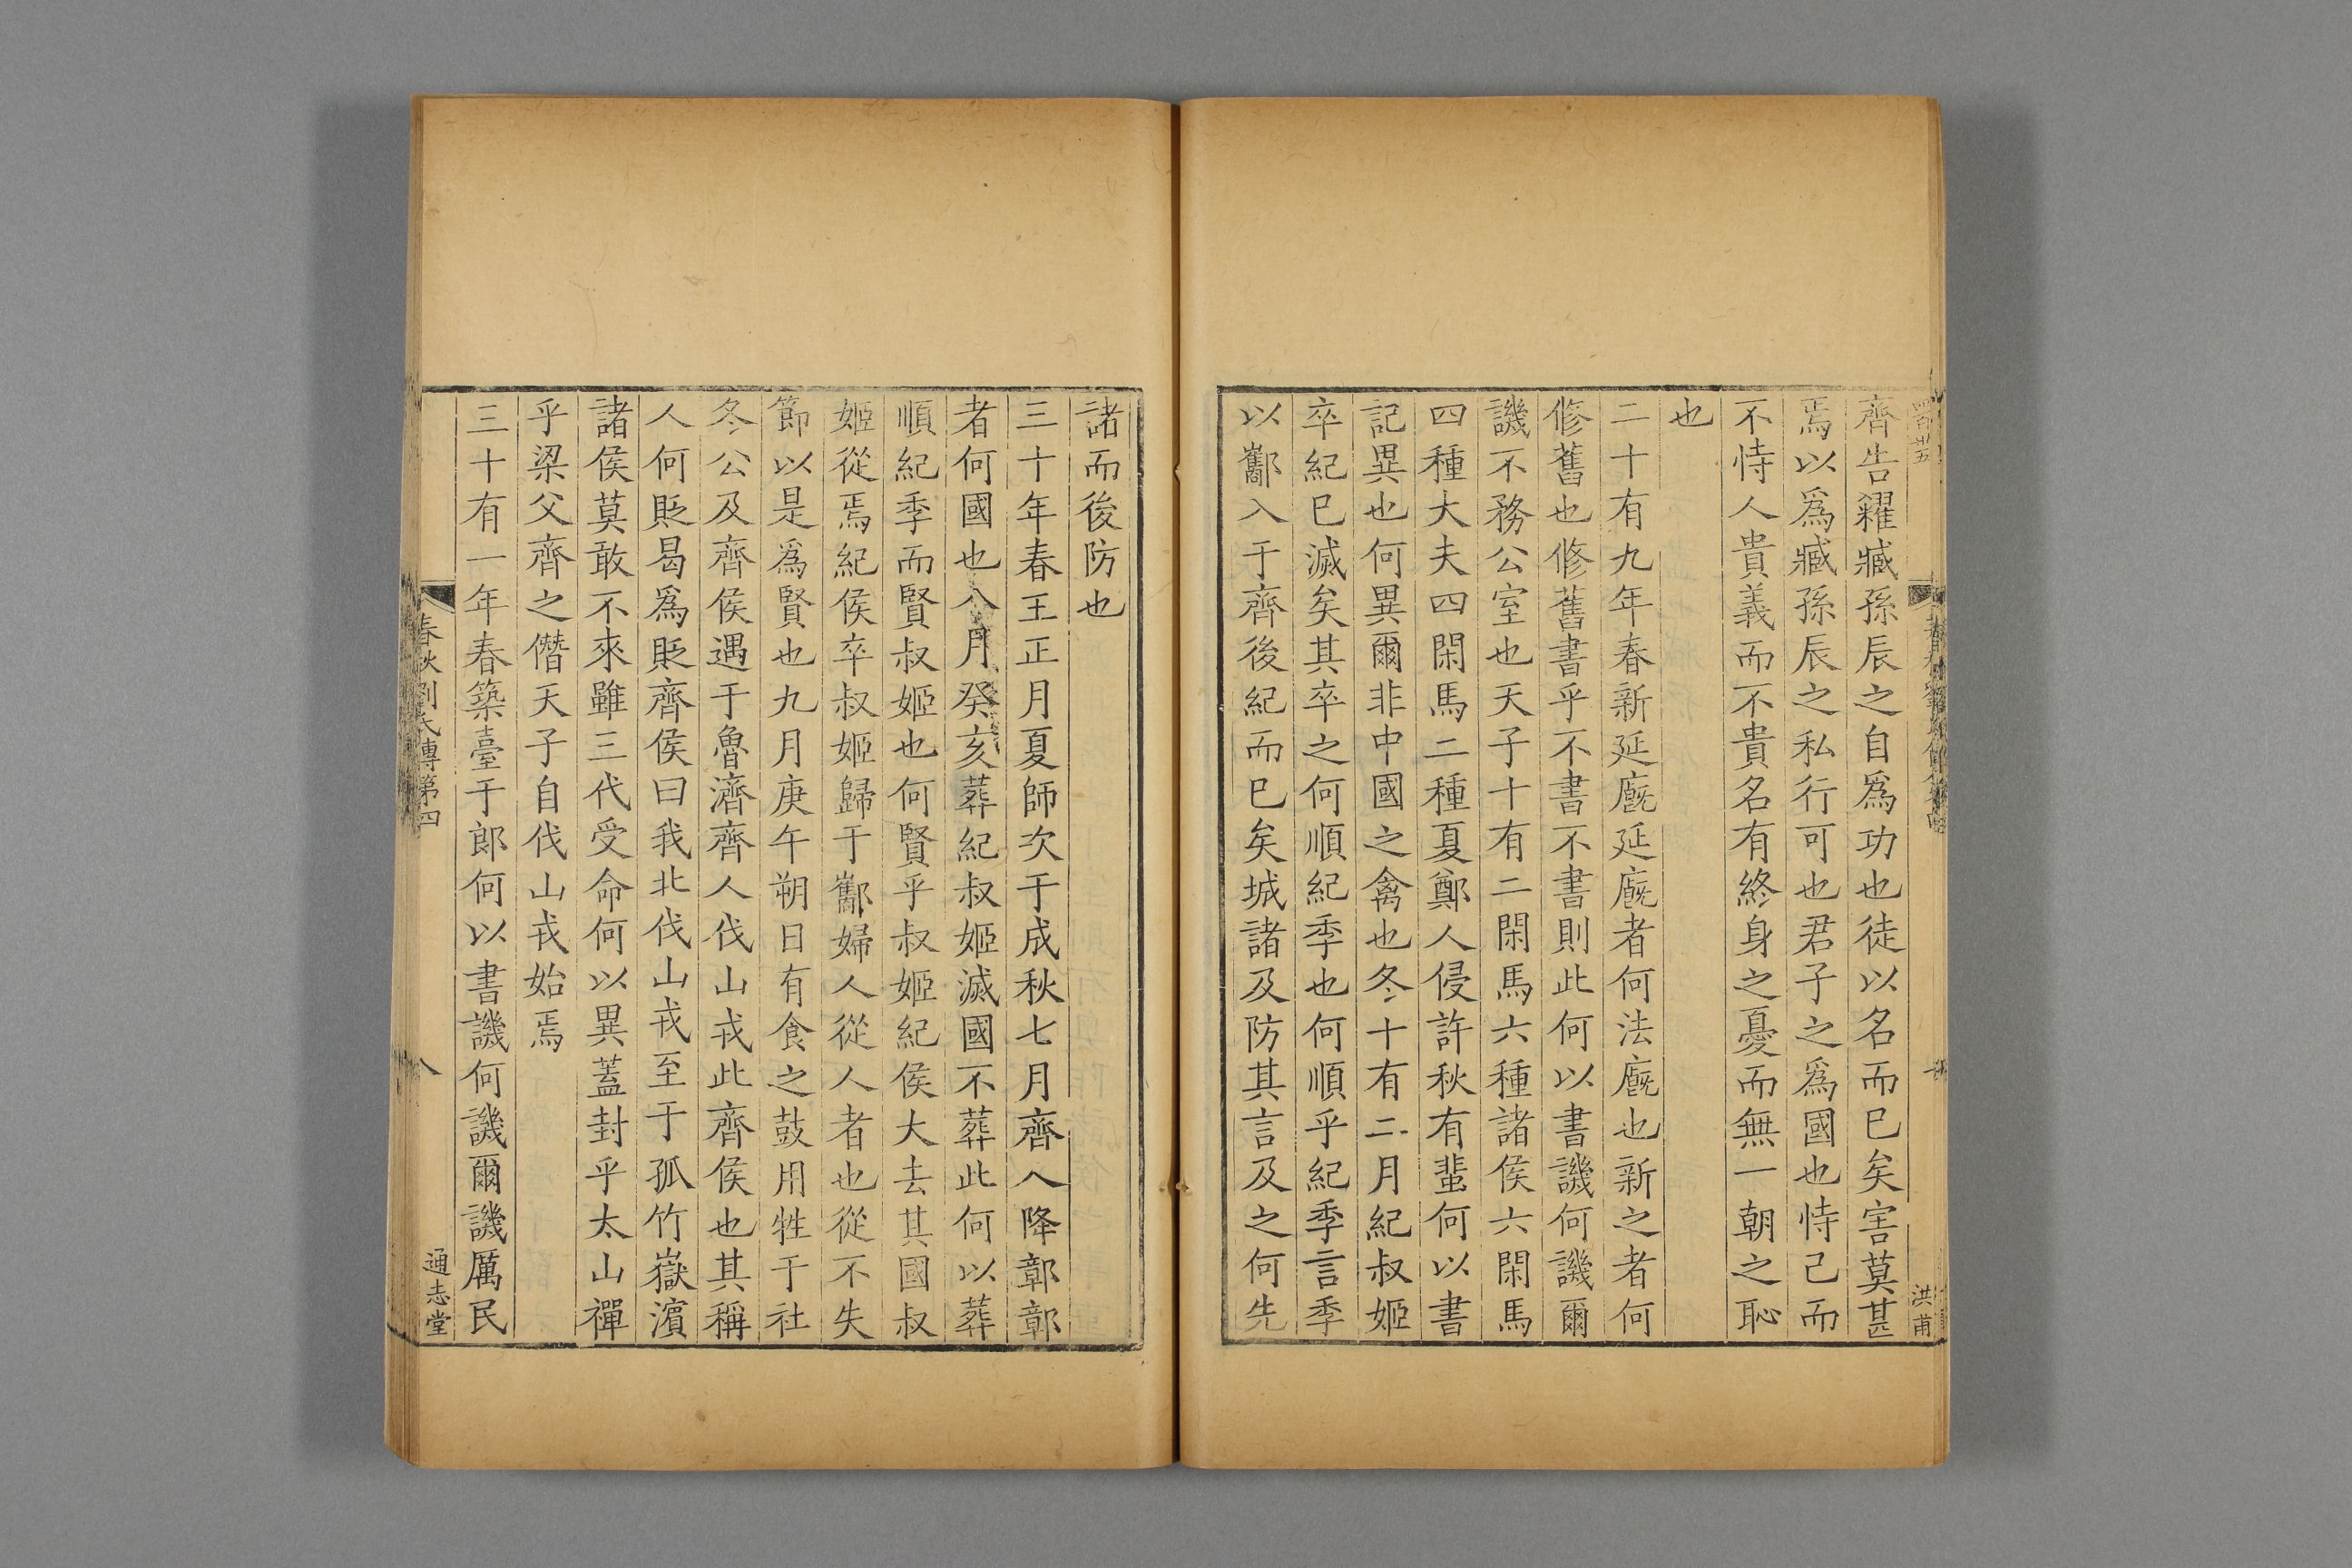 齊告糴臧孫辰之自爲功也徒以名而巳矣害莫甚
焉以爲臧孫辰之私行可也君子之爲國也恃己而
不恃人貴義而不貴名有終身之憂而無一朝之恥
也
二十有九年春新延廐延廐者何法廐也新之者何
修舊也修舊書乎不書不書則此何以書譏何譏爾
譏不務公室也天子十有二閑馬六種諸侯六閑馬
四種大夫四閑馬二種夏鄭人侵許秋有蜚何以書
記異也何異爾非中國之禽也冬十有二月紀叔姬
卒紀巳滅矣其卒之何順紀季也何順乎紀季言季
以酅入于齊後紀而巳矣城諸及防其言及之何先
洪甫
諸而後防也
三十年春王正月夏師次于成秋七月齊人降鄣鄣
者何國也八月癸亥葬紀叔姬滅國不葬此何以葬
順紀季而賢叔姬也何賢乎叔姬紀侯大去其國叔
姬從焉紀侯卒叔姬歸于酅婦人從人者也從不失
節以是爲賢也九月庚午朔日有食之鼓用牲于社
冬公及齊侯遇于魯濟齊人伐山戎此齊侯也其稱
人何貶曷爲貶齊侯曰我北伐山戎至于孤竹嶽濵
諸侯莫敢不來雖三代受命何以異蓋封乎太山禪
乎梁父齊之僭天子自伐山戎始焉
三十有一年春築臺于郎何以書譏何譏爾譏厲民
春秋劉氏傳第四
八
通志堂